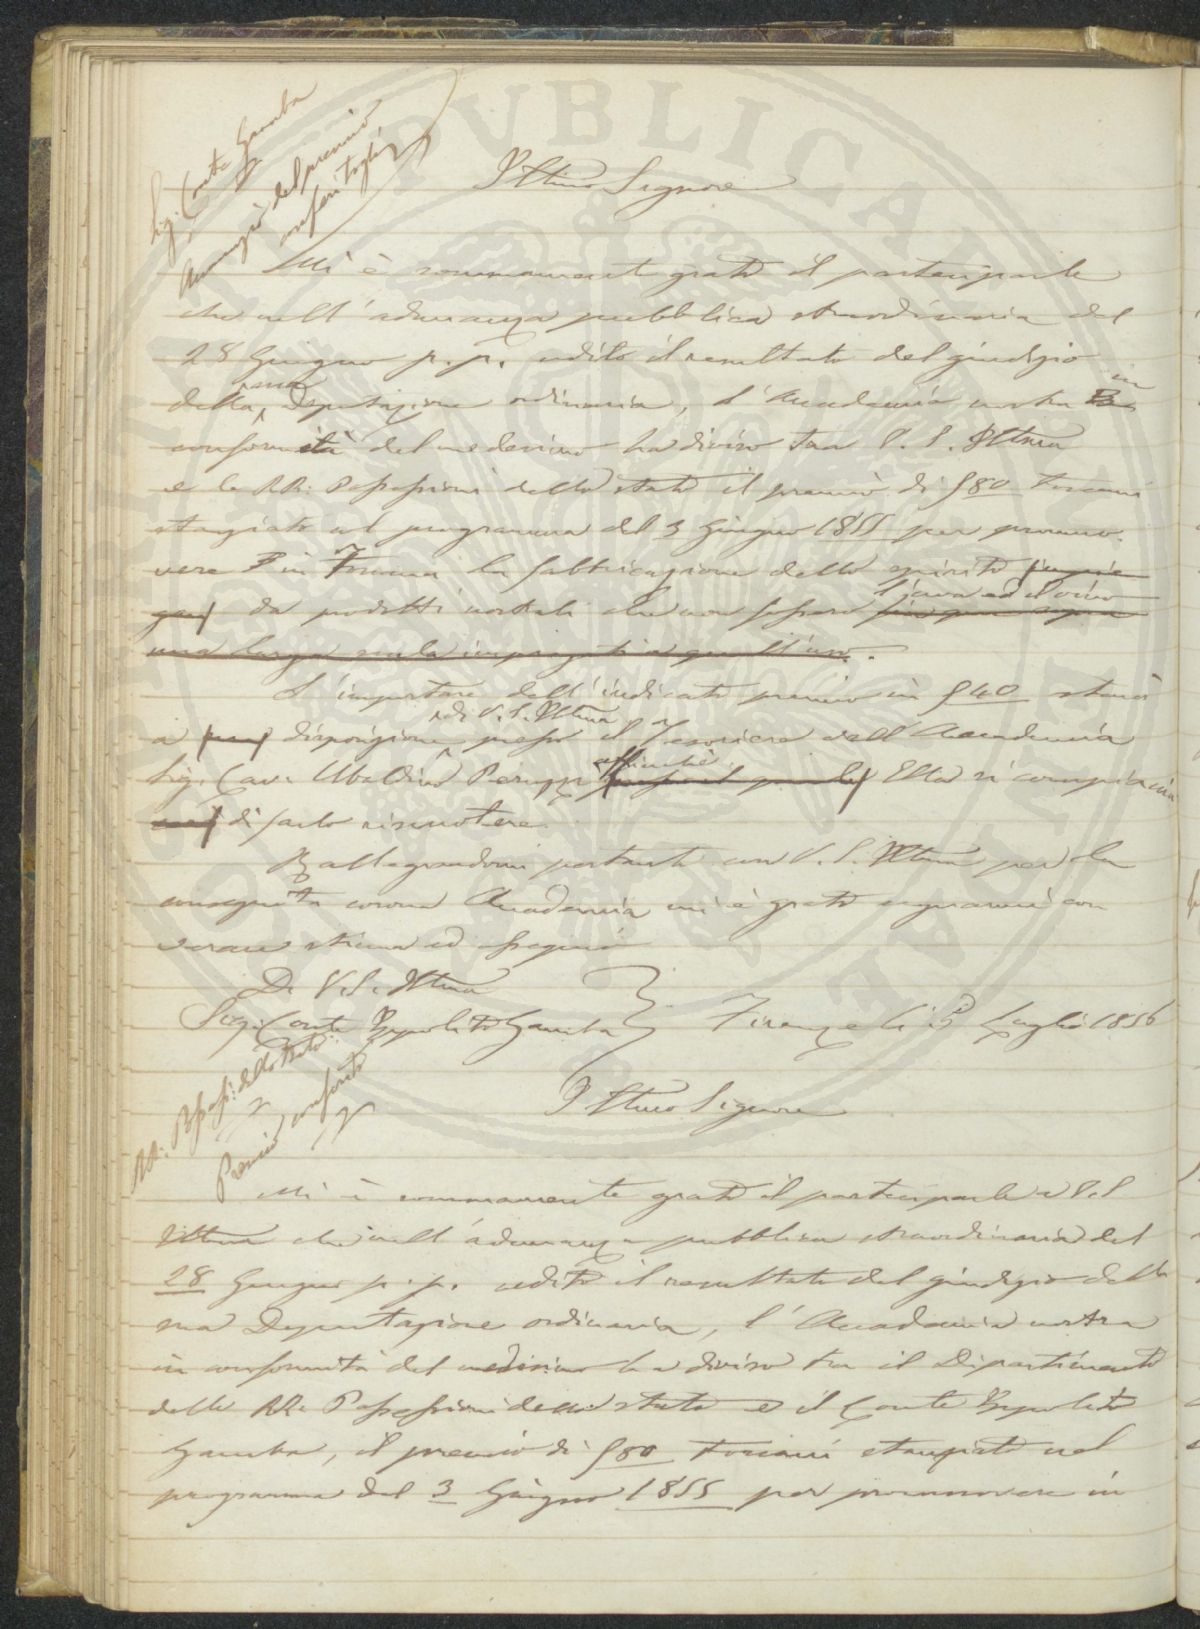 Sig. Conte Gamba
Annunzio del premio
conferitogli
Illmo Signore
Mi è sommamente grato il partecipare
che nell'adunanza pubblica straordinaria del
28 Giugno p. p. udito il resultato del giudizio
della sua Deputazione ordinaria, l'Accademia nostra in
conformità del medesimo ha diviso tra V. S. Illma
e le RR: Possessioni dello stato il premio di £80 Toscani
stanziato nel programma del 3 Giugno 1855 per promuo-
vere in Toscana la fabbricazione dello spirito
da prodotti nostrali che non fossero l'uva ed il vino
L'importare dell'indicato premio in £40 starà
a disposizione di V. S. Illma presso il Tesoriere dell'Accademia
Sig. Cav. Ubaldino Peruzzi affinchè Ella si compiaccia
di farlo riscuotere.
Rallegrandomi pertanto con V. S. Illma per la
conseguita corona Accademica mi è grato segnarmi con
verace stima ed ossequio
Di V. S. Illma
Sig. Conte Ippolito Gamba
Firenze li 3 Luglio 1856
RR: Possess: dello Stato
Premio conferito
Illmo Signore
Mi è sommamente grato il partecipare a V. S.
Illma che nell'adunanza pubblica straordinaria del
28 Giugno p. p. udito il resultato del giudizio della
sua Deputazione ordinaria, l'Accademia nostra
in conformità del medesimo ha diviso tra il Dipartimento
delle RR. Possessioni dello stato e il Conte Ippolito
Gamba, il premio di £80 Toscani stampato nel
programma del 3 Giugno 1855 per promuovere in